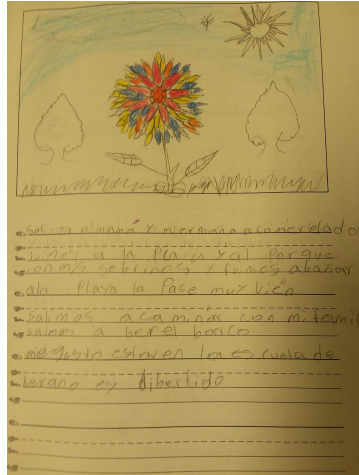 sali con mi mamá y mi ermana a comer elado
fuimos a la playa y al parque
con mis sobrinos y fuimos abasar
ala playa la Pase muy bien
salimos a caminar con mi famil
salimos a ber el barco
me gusta estar en la escuela de
berano es dibertido